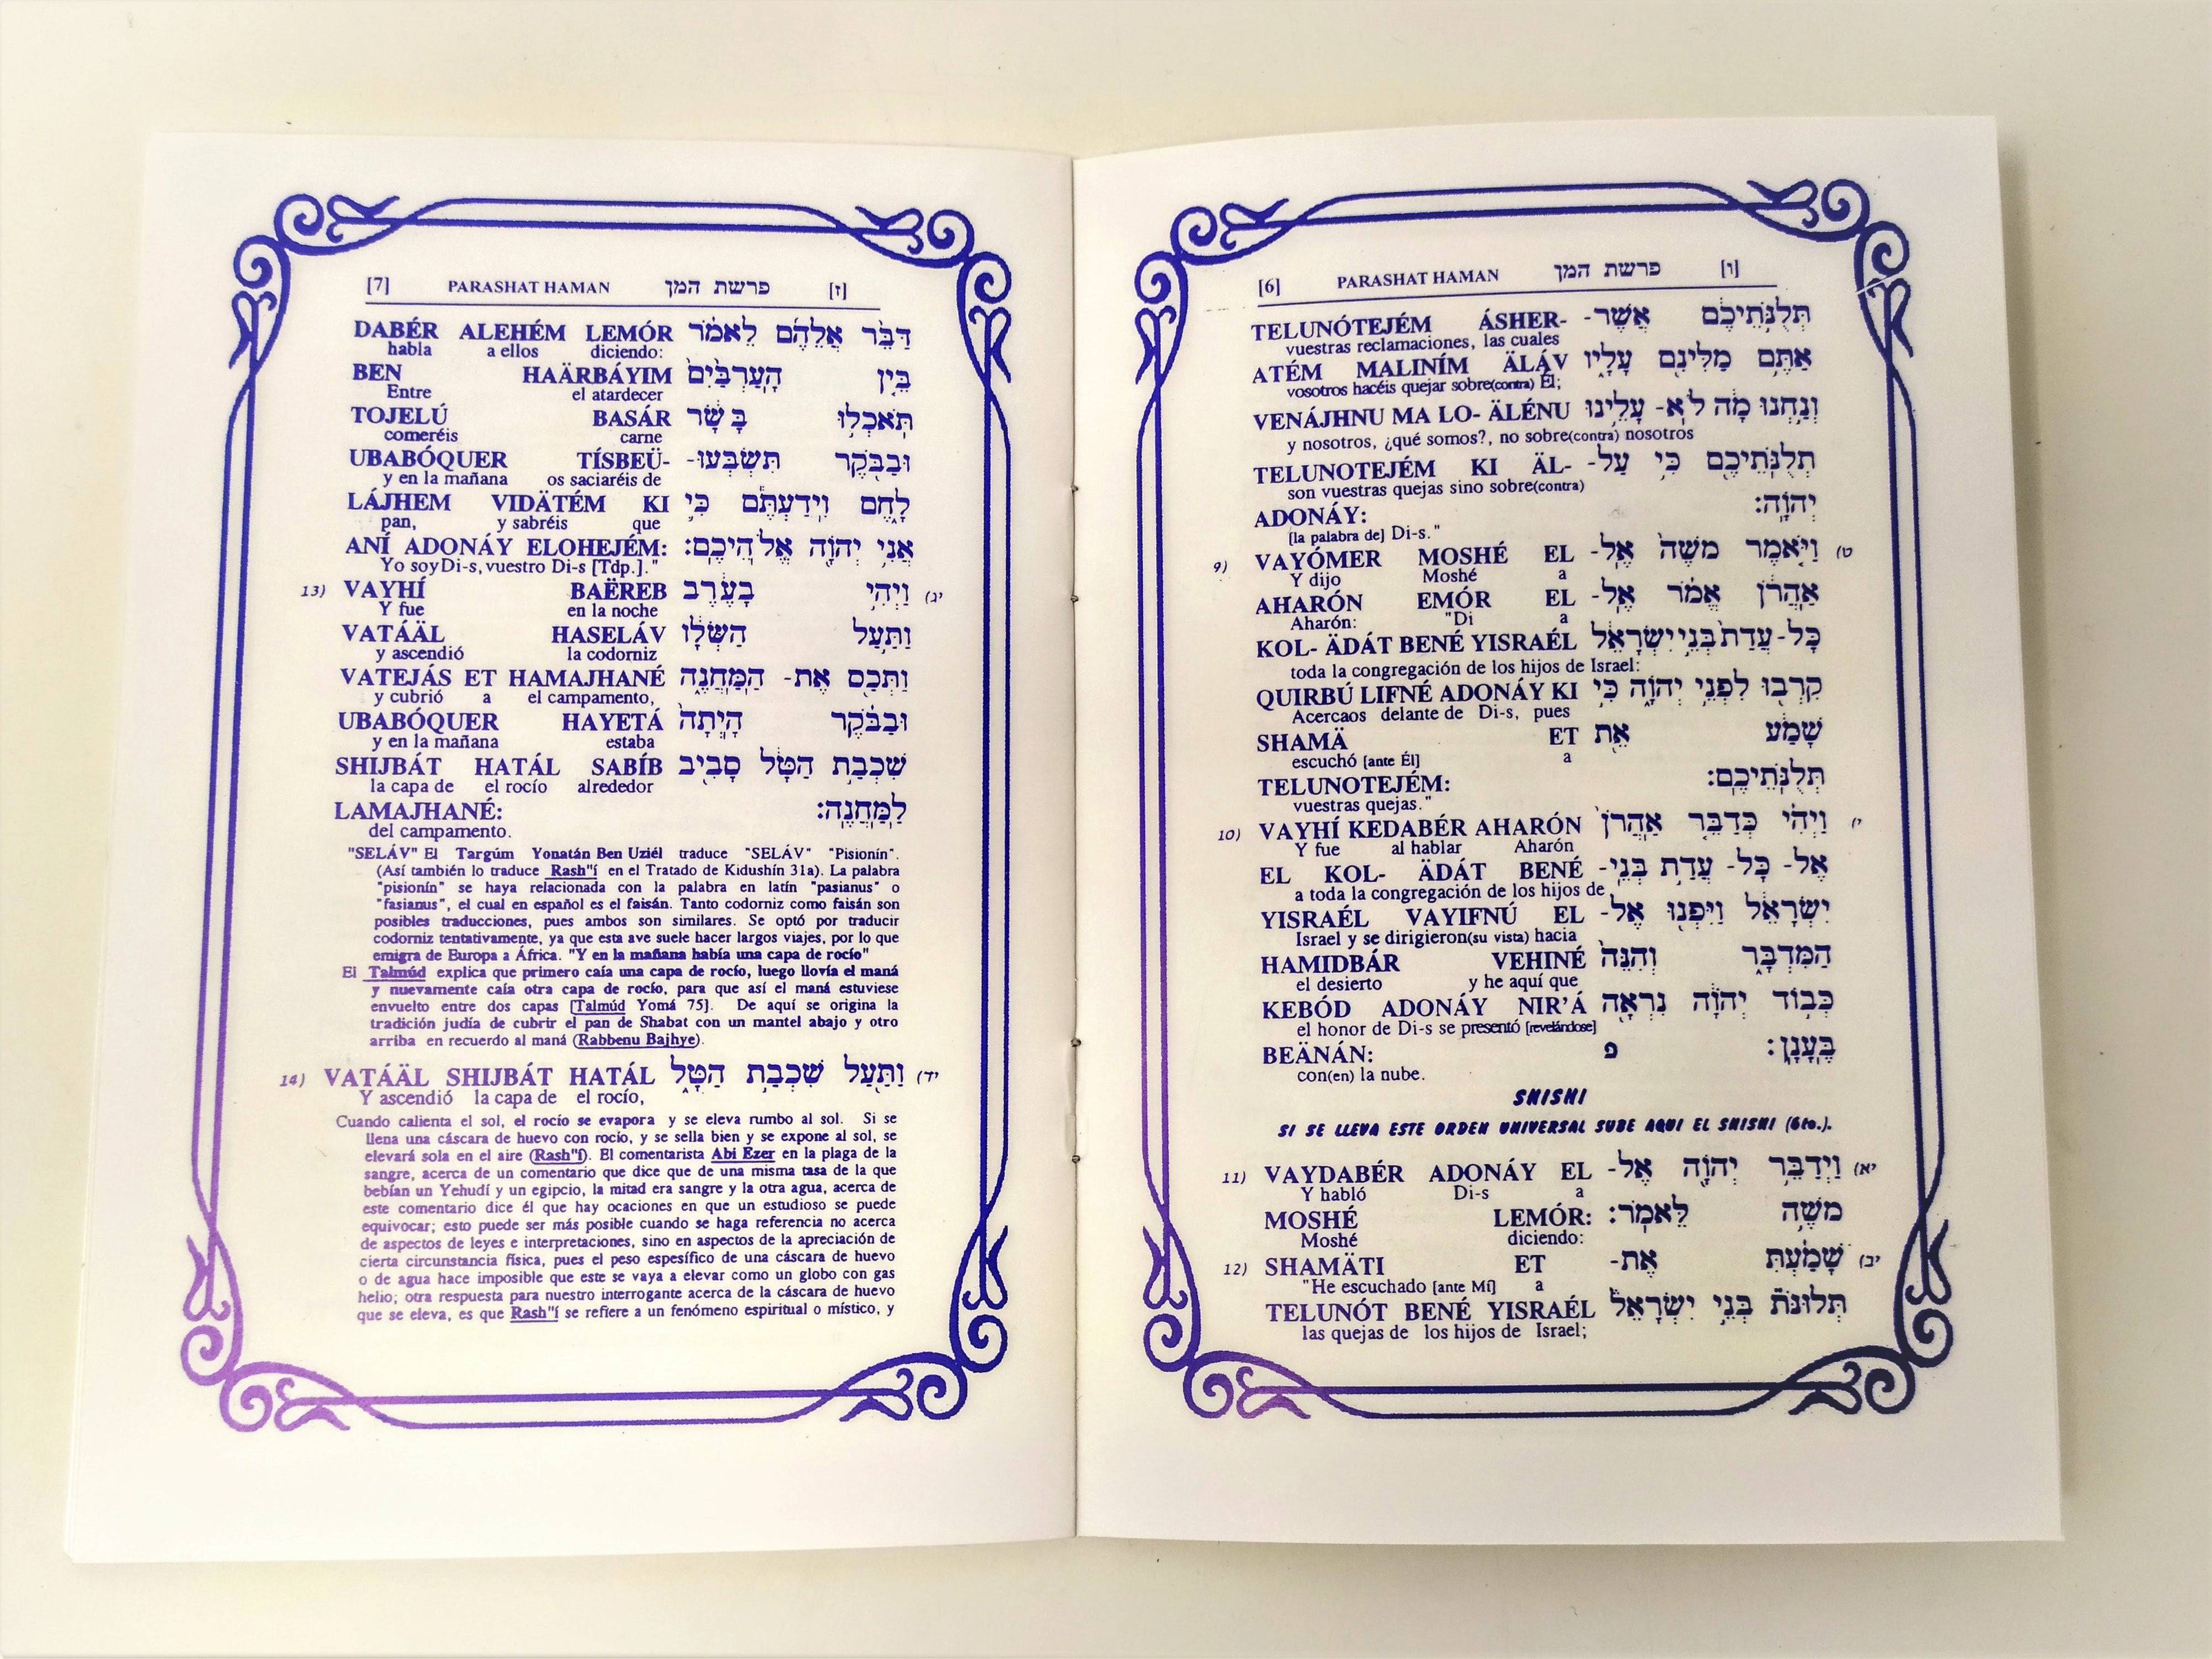 [6] PARASHAT HAMAN פרשת המן [ו]
TELUNÓTEJÉM ÁSHER- תְּלֻנֹּתֵיכֶם אֲשֶׁר-
vuestras reclamaciones, las cuales
ATÉM MALINÍM ÄLÁV אַתֶּם מַלִּינִם עָלָיו
vosotros hacéis quejar sobre(contra) Él;
VENÁJHNU MA LO- ÄLÉNU וְנַחְנוּ מָה לֹא- עָלֵינוּ
y nosotros, ¿qué somos?, no sobre(contra) nosotros
TELUNOTEJÉM KI ÄL- תְלֻנֹּתֵיכֶם כִּי עַל-
son vuestras quejas sino sobre(contra)
ADONÁY: יְהוָה:
[la palabra de] Di-s."
9) VAYÓMER MOSHÉ EL וַיֹּאמֶר מֹשֶׁה אֶל- ט)
Y dijo Moshé a
AHARÓN EMÓR EL אַהֲרֹן אֱמֹר אֶל-
Aharón: "Di a
KOL- ÄDÁT BENÉ YISRAÉL כָּל-עֲדַת בְּנֵי יִשְׂרָאֵל
toda la congregación de los hijos de Israel:
QUIRBÚ LIFNÉ ADONÁY KI קִרְבוּ לִפְנֵי יְהוָה כִּי
Acercaos delante de Di-s, pues
SHAMÄ ET שָׁמַע אֵת
escuchó [ante Él] a
TELUNOTEJÉM: תְּלֻנֹּתֵיכֶם:
vuestras quejas."
10) VAYHÍ KEDABÉR AHARÓN וַיְהִי כְּדַבֵּר אַהֲרֹן י)
Y fue al hablar Aharón
EL KOL- ÄDÁT BENÉ אֶל- כָּל- עֲדַת בְּנֵי-
a toda la congregación de los hijos de
YISRAÉL VAYIFNÚ EL יִשְׂרָאֵל וַיִּפְנוּ אֶל-
Israel y se dirigieron(su vista) hacia
HAMIDBÁR VEHINÉ הַמִּדְבָּר וְהִנֵּה
el desierto y he aquí que
KEBÓD ADONÁY NIR'Á כְּבוֹד יְהוָה נִרְאָה
el honor de Di-s se presentó [revelándose]
BEÄNÁN: פ בֶּעָנָן:
con(en) la nube.
SHISHI
SI SE LLEVA ESTE ORDEN UNIVERSAL SUBE AQUI EL SHISHI (6to.).
11) VAYDABÉR ADONÁY EL וַיְדַבֵּר יְהוָה אֶל- יא)
Y habló Di-s a
MOSHÉ LEMÓR: מֹשֶׁה לֵּאמֹר:
Moshé diciendo:
12) SHAMÄTI ET שָׁמַעְתִּי אֶת- יב)
"He escuchado [ante Mí] a
TELUNÓT BENÉ YISRAÉL תְּלוּנֹּת בְּנֵי יִשְׂרָאֵל
las quejas de los hijos de Israel;
[7] PARASHAT HAMAN פרשת המן [ז]
DABÉR ALEHÉM LEMÓR דַּבֵּר אֲלֵהֶם לֵאמֹר
habla a ellos diciendo:
BEN HAÄRBÁYIM בֵּין הָעַרְבַּיִם
Entre el atardecer
TOJELÚ BASÁR תֹּאכְלוּ בָשָׂר
comeréis carne
UBABÓQUER TÍSBEÜ- וּבַבֹּקֶר תִּשְׂבְּעוּ-
y en la mañana os saciaréis de
LÁJHEM VIDÄTÉM KI לָחֶם וִידַעְתֶּם כִּי
pan, y sabréis que
ANÍ ADONÁY ELOHEJÉM: אֲנִי יְהוָה אֱלֹהֵיכֶם:
Yo soy Di-s, vuestro Di-s [Tdp.]."
13) VAYHÍ BAËREB וַיְהִי בָעֶרֶב יג)
Y fue en la noche
VATÁÄL HASELÁV וַתַּעַל הַשְּׂלָו
y ascendió la codorniz
VATEJÁS ET HAMAJHANÉ וַתְּכַס אֶת- הַמַּחֲנֶה
y cubrió a el campamento,
UBABÓQUER HAYETÁ וּבַבֹּקֶר הָיְתָה
y en la mañana estaba
SHIJBÁT HATÁL SABÍB שִׁכְבַת הַטַּל סָבִיב
la capa de el rocío alrededor
LAMAJHANÉ: לַמַּחֲנֶה:
del campamento.
"SELÁV" El Targúm Yonatán Ben Uziél traduce "SELÁV" "Pisionín".
(Así también lo traduce Rash"í en el Tratado de Kidushín 31a). La palabra
"pisionín" se haya relacionada con la palabra en latín "pasianus" o
"fasianus", el cual en español es el faisán. Tanto codorniz como faisán son
posibles traducciones, pues ambos son similares. Se optó por traducir
codorniz tentativamente, ya que esta ave suele hacer largos viajes, por lo que
emigra de Europa a África. "Y en la mañana había una capa de rocío"
El Talmúd explica que primero caía una capa de rocío, luego llovía el maná
y nuevamente caía otra capa de rocío, para que así el maná estuviese
envuelto entre dos capas [Talmúd Yomá 75]. De aquí se origina la
tradición judía de cubrir el pan de Shabat con un mantel abajo y otro
arriba en recuerdo al maná (Rabbenu Bajhye).
14) VATÁÄL SHIJBÁT HATÁL וַתַּעַל שִׁכְבַת הַטָּל יד)
Y ascendió la capa de el rocío,
Cuando calienta el sol, el rocío se evapora y se eleva rumbo al sol. Si se
llena una cáscara de huevo con rocío, y se sella bien y se expone al sol, se
elevará sola en el aire (Rash"í). El comentarista Abi Ezer en la plaga de la
sangre, acerca de un comentario que dice que de una misma tasa de la que
bebían un Yehudí y un egipcio, la mitad era sangre y la otra agua, acerca de
este comentario dice él que hay ocaciones en que un estudioso se puede
equivocar; esto puede ser más posible cuando se haga referencia no acerca
de aspectos de leyes e interpretaciones, sino en aspectos de la apreciación de
cierta circunstancia física, pues el peso espesífico de una cáscara de huevo
o de agua hace imposible que este se vaya a elevar como un globo con gas
helio; otra respuesta para nuestro interrogante acerca de la cáscara de huevo
que se eleva, es que Rash"í se refiere a un fenómeno espiritual o místico, y